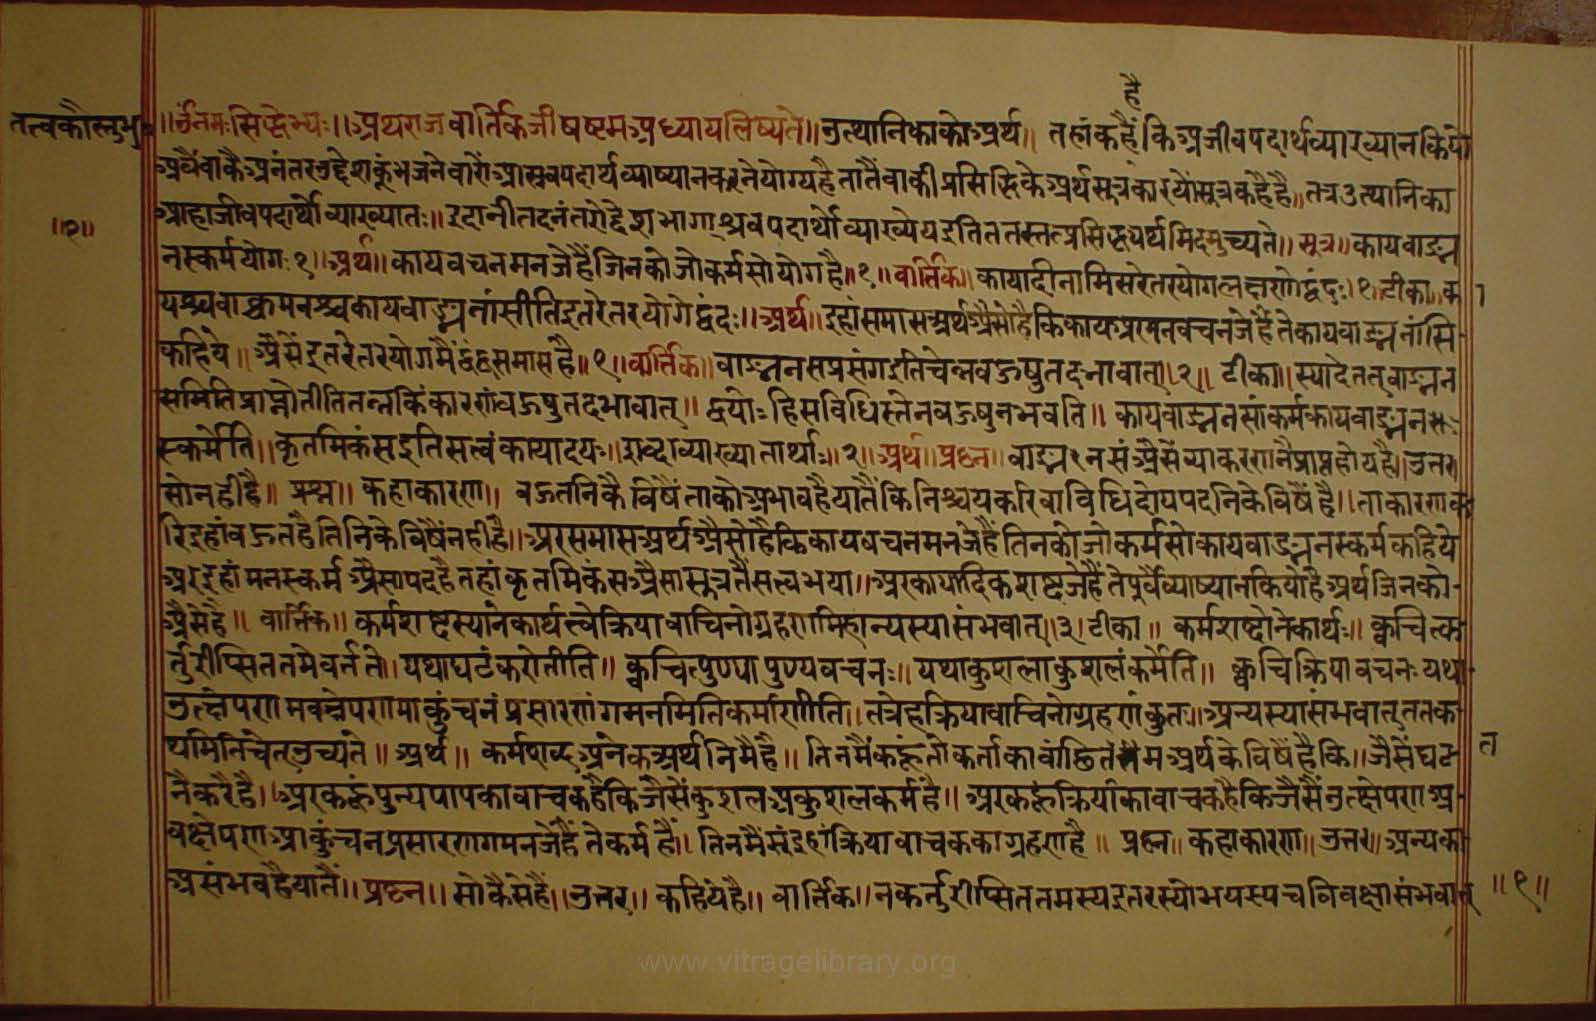 है
तत्वकौस्तुभ ॥ॐनमःसिद्धेभ्यः॥अथराजवार्तिकजीषष्टमअध्यायलिष्यते॥उत्थानिकाकोअर्थ॥ तहांकहैंकिअजीवपदार्थव्याख्यानकियो
अवैंवाकैअनंतरउद्देशकूंभजनेवारोआस्रवपदार्थव्याष्यानकरनेयोग्यहैतातैंवाकीप्रसिद्धिकेअर्थसूत्रकारयोसूत्रकहैहै॥तत्रउत्थानिका
॥१॥ आहाजीवपदार्थोव्याख्यातः॥इदानीतदनंतरोद्देशभागाश्रवपदार्थोव्याख्येयइतिततस्तत्प्रसिद्ध्यर्थमिदमुच्यते॥सूत्र॥कायवाङ्मन
नस्कर्मयोगः१॥अर्थ॥कायवचनमनजेहैंजिनकोजोकर्मसोयोगहै॥१॥वार्तिक॥कायादीनामिसरेतरयोगलक्षणोद्वंदः।१।टीका॥का
यश्चवाक्चमनश्चकायवाङ्मनांसीतिइतरेतरयोगेद्वंदः॥अर्थ॥इहांसमासअर्थअैसोहैकिकायअरमनवचनजेहैंतेकायवाङ्मनांसि-
कहिये॥अैसेंइतरेतरयोगमैंद्वंद्वसमासहै॥१॥वार्तिक॥वाङ्मनसप्रसंगइतिचेन्नबऊषुतदभावात्॥२॥टीका॥स्यादेतत्वाङ्मन
समितिप्राप्नोतीतितन्नकिंकारणंबऊषुतदभावात्॥द्वयोःहिसविधिस्तेनबऊषुनभवति॥कायवाङ्मनसांकर्मकायवाङ्मनसः
स्कर्मेति॥कृतमिकंसइतिसत्वंकायादयः॥शब्दाव्याख्यातार्थाः॥२॥अर्थ॥प्रष्न॥वाङ्मनसंअैसेंव्याकरणनैप्राप्तहोयहै॥उत्तर
सोनहीहै॥प्रश्न॥कहाकारण॥बऊतनिकैविषैंताकोअभावहैयातैंकिनिश्चयकरिवाविधिदोयपदनिकेविषैंहै॥ताकारणक
रिइहांबऊतहैतिनिकेविषैंनहीहै॥अरसमासअर्थअैसोहैकिकायवचनमनजेहैंतिनकोजोकर्मसोकायवाङ्मनस्कर्मकहिये
अरइहांमनस्कर्मअैसापदहैतहांकृतमिकंसअैसासूत्रतैंसत्वभया॥अरकायादिकशब्दजेहैंतेपूर्वैव्याष्यानकियोहैअर्थजिनको-
अैसेहै॥वार्तिक॥कर्मशब्दस्यानेकार्थत्वेक्रियावाचिनोग्रहणमिहान्यस्यासंभवात्॥३।टीका॥कर्मशब्दोनेकार्थः॥क्वचित्क
र्तुरीप्सिततमेवर्तते॥यथाघटंकरोतीति॥क्वचित्पुण्यापुण्यवचनः॥यथाकुशलाकुशलंकर्मेति॥क्वचित्क्रियावचनःयथा
उत्क्षेपणमवक्षेपणमाकुंचनंप्रसारणंगमनमितिकर्माणीति॥तत्रेहक्रियावाचिनोग्रहणंकुतः॥अन्यस्यासंभवात्ततक
थमितिचेत्उच्यते॥अर्थ॥कर्मशब्दअनेकअर्थनिमैहै॥तिनमैंकहूंतोकर्ताकावांछितमअर्थकेविषैंहैकि॥जैसेंघट त
नैकरैहै॥अरकहूंपुन्यपापकावाचकहैकिजैसेंकुशलअकुशलकर्महै॥अरकहूंक्रियांकावाचकहैकिजैसैंउत्क्षेपणअ-
वक्षेपणआकुंचनप्रसारणगमनजेहैंतेकर्महैं॥तिनमैसूंइहांक्रियावाचककाग्रहणहै॥प्रष्न॥कहाकारण॥उत्तर॥अन्यका
असंभवहैयातैं॥प्रष्न॥सोकैसेहै॥उत्तर॥कहियेहै॥वार्तिक॥नकर्तुरीप्सिततमस्यइतरस्योभयस्यचविवक्षासंभवात् ॥१॥
www.vitragelibrary.org